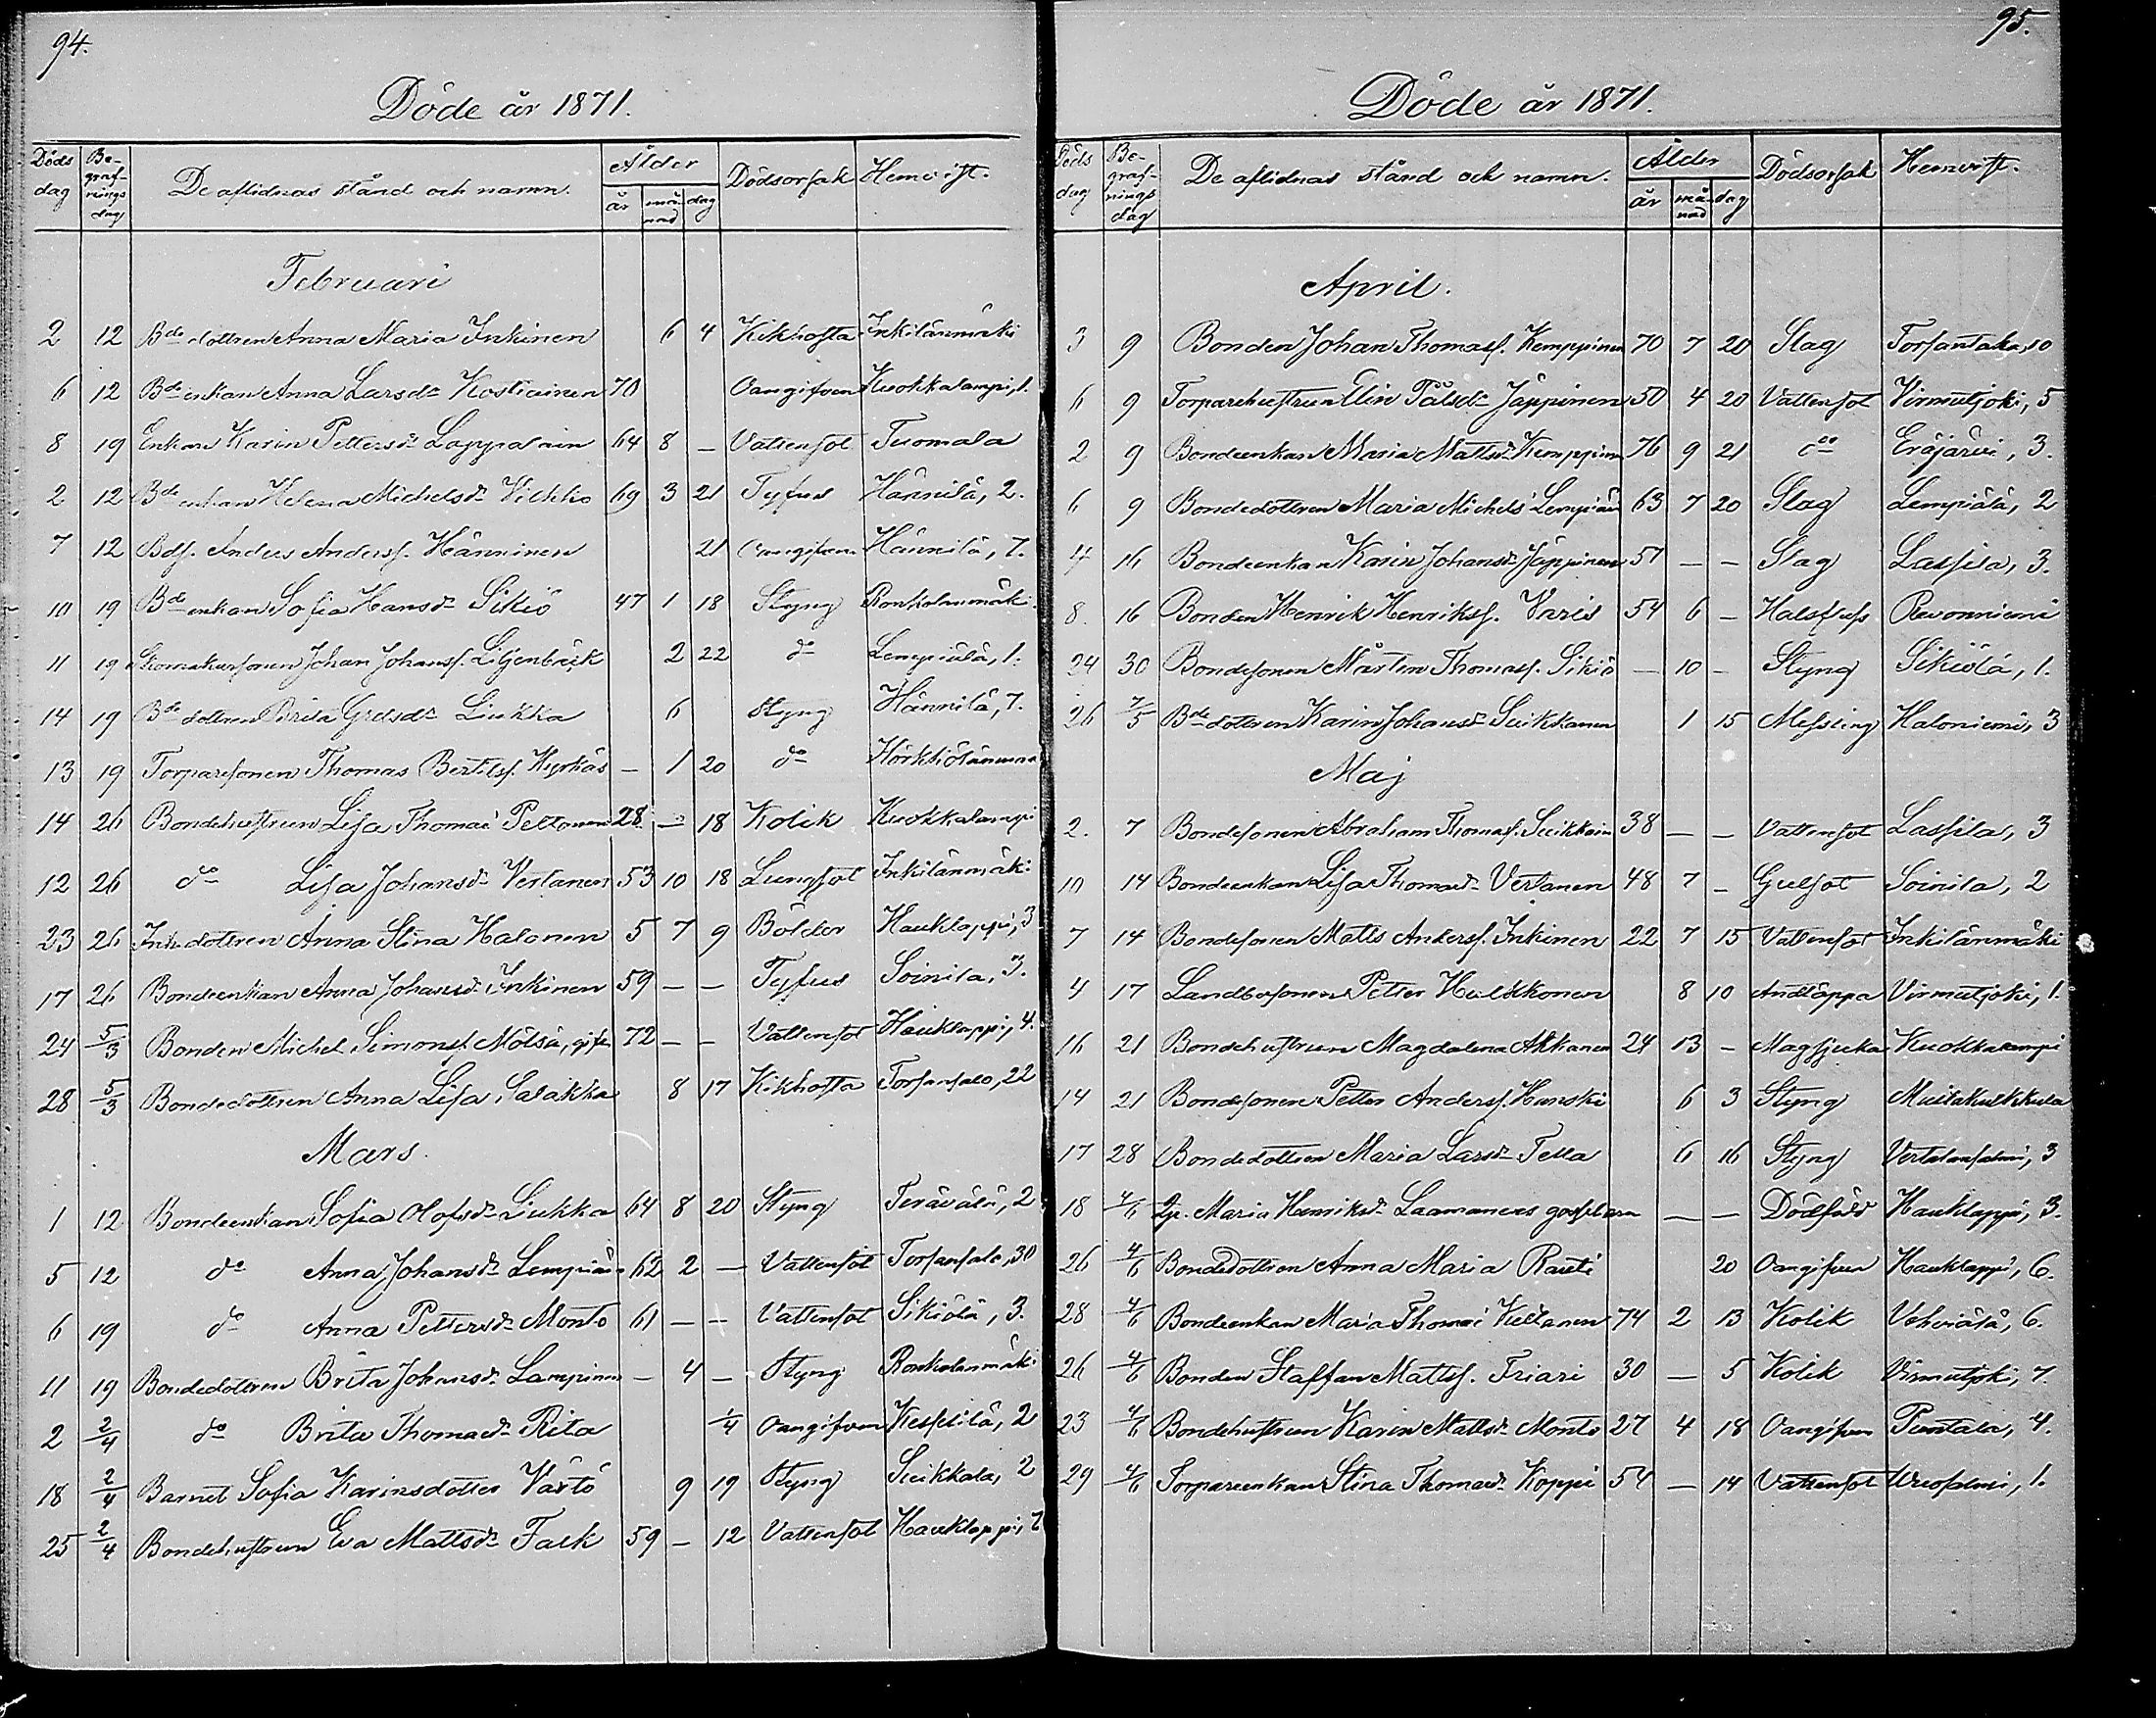 94.
Döde år 1871.
Döds dag Begrafnings dag De aflidnas stånd och namn. Ålder år månad dag Dödsorsak Hemvist.
Februari
2 12 Bde dottren Anna Maria Inkinen 6 4 Kikhosta Inkilänmäki
6 12 Bde enkan Anna Larsdr Kostiainen 70 Oangifven Kuokkalampi, 1.
8 19 Enkan Karin Pettersdr Lappalain 64 8 – Vattensot Tuomala
2 12 Bde enkan Helena Michelsdr Vichko 69 3 21 Tyfus Hännilä, 2.
7 12 Bds. Anders Anderss. Hänninen 21 Oangifven Hännilä, 7.
10 19 Bde enkan Sofia Hansdr Sikiö 47 1 18 Styng Ronkolanmäki.
11 19 Skomakarsonen Johan Johanss. Liljenbäck 2 22 do Lempiälä, 1.
14 19 Bde dottren Brita Grelsdr Liukka 6 Styng Hännilä, 7.
13 19 Torparesonen Thomas Bertilss. Hyrkäs – 1 20 do
14 26 Bondehustrun Lisa Thomasd Peltonen 28. – 18 Kolik Kuokkalampi
12 26 do Lisa Johansdr Vertanen 53 10 18 Lungsot Inkilänmäki
23 26 Inh. dottren Anna Stina Halonen 5 7 9 Bölder Hauklappi, 3
17 26 Bondeenkan Anna Johansdr Inkinen 59 – – Tyfus Soinila, 3.
24 5/3 Bonden Michel Simonss. Mölsä, gift 72 – – Vattensot Hauklappi, 4.
28 5/3 Bondedottren Anna Lisa Salakka 8 17 Kikhosta Torsansalo, 22
Mars.
1 12 Bondeenkan Sofia Olofsdr Liukka 64 8 20 Styng Terävälä, 2
5 12 do Anna Johansdr Lempiäin 62 2 – Vattensot Torsansalo, 30
6 19 do Anna Pettersdr Monto 61 – – Vattensot Sikiölä, 3.
11 19 Bondedottren Brita Johansdr Lampinen – 4 – Styng Ronkolanmäki
2 2/4 do Brita Thomasdr Rita 1/4 Oangifven Kesseilä, 2
18 2/4 Barnet Sofia Karinsdotter Värtö 9 19 Styng Suikkala, 2
25 2/4 Bondehustrun Eva Mattsdr Falk 59 – 12 Vattensot Hauklappi, 7
95.
Döde år 1871.
Döds dag Begrafnings dag De aflidnas stånd och namn. Ålder år månad dag Dödsorsak Hemvist.
April.
3 9 Bonden Johan Thomass. Kemppinen 70 7 20 Slag Torsantaka, 10
6 9 Torparehustrun Elin Pålsdr Jäppinen 50 4 20 Vattensot Virmutjoki, 5
2 9 Bondeenkan Maria Mattsdr Kemppinen 76 9 21 do Eräjärvi, 3.
6 9 Bondedottren Maria Michelsd Lempiäin 63 7 20 Slag Lempiälä, 2
4 16 Bondeenkan Karin Johansdr Jäppinen 51 – – Slag Lassila, 3.
8. 16 Bonden Henrik Henrikss. Varis 54 6 – Halsfluss Revonniemi
24 30 Bondesonen Mårten Thomass. Sikiö – 10 – Styng Sikiölä, 1.
26 7/5 Bde dottren Karin Johansdr Suikkanen 1 15 Messling Haloniemi, 3
Maj
2. 7 Bondesonen Abraham Thomass. Suikkain 38 – – Vattensot Lassila, 3
10 14 Bondeenkan Lisa Thomasdr Vertanen 48 7 – Gulsot Soinila, 2
7 14 Bondesonen Matts Anderss. Inkinen 22 7 15 Vattensot Inkilänmäki
4 17 Landbosonen Petter Hulkkonen 8 10 Andtäppa Virmutjoki, 1.
16 21 Bondehustrun Magdalena Akkanen 24 13 – Magsjuka Kuokkalampi
14 21 Bondesonen Petter Anderss. Hanski 6 3 Styng
17 28 Bondedottren Maria Larsdr Tella 6 16 Styng Vertalansalmi, 3
18 4/6 Maria Henriksdr Laamanens gossebarn – – Dödfödd Hauklappi, 3.
26 4/6 Bondedottren Anna Maria Rauti 20 Oangifven Hauklappi, 6.
28 4/6 Bondeenkan Maria Thomasd Kiltanen 74 2 13 Kolik Vehviälä, 6.
26 4/6 Bonden Staffan Mattss. Friari 30 – 5 Kolik Virmutjoki, 7.
23 4/6 Bondehustrun Karin Mattsdr Monto 27 4 18 Oangifven Puntala, 4.
29 4/6 Torpareenkan Stina Thomasdr Koppi 54 – 14 Vattensot Utrosalmi, 1.